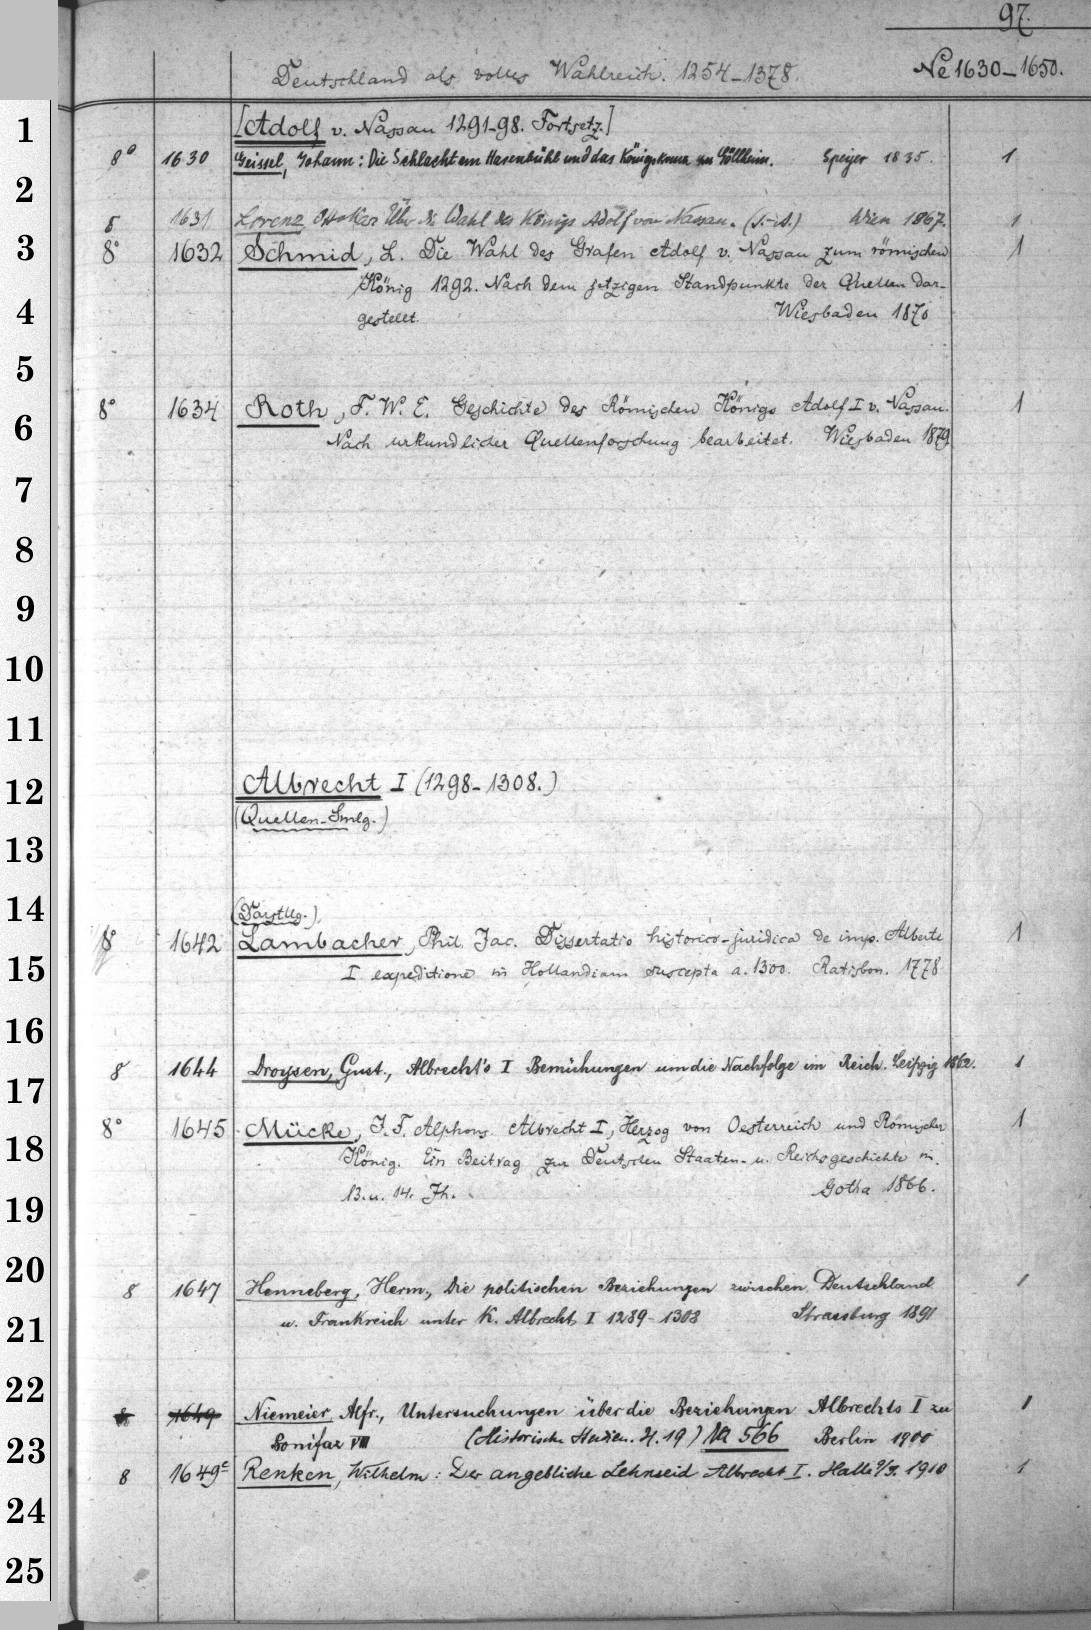 97.
Deutschland als volles Wahlreich. 1254–1378. Ne 1630–1650.
1 [Adolf v. Nassau 1291–98. Fortsetz.]
8° 1630 Geissel, Johann: Die Schlacht am Hasenbühl und das Königskreuz zu Göllheim. Speyer 1835. 1
2
8 1631 Lorenz Ottokar Über die Wahl des Königs Adolf von Nassau. (S.-A.) Wien 1867. 1
3 8° 1632 Schmid, L. Die Wahl des Grafen Adolf v. Nassau zum römischen 1
König 1292. Nach dem jetzigen Standpunkte der Quellen dar-
4 gestellt. Wiesbaden 1870
5
8° 1634 Roth, F. W. E. Geschichte des Römischen Königs Adolf I v. Nassau. 1
6 Nach urkundlicher Quellenforschung bearbeitet. Wiesbaden 1879.
7
8
9
10
11
12 Albrecht I (1298–1308.)
(Quellen-Smlg.)
13
14 (Darstllg.)
8° 1642 Lambacher, Phil. Jac. Dissertatio historico-juridica de imp. Alberte 1
15 I expeditione in Hollandiam suscepta a. 1300. Ratisbon. 1778
16
8 1644 Droysen, Gust., Albrecht's I Bemühungen um die Nachfolge im Reich. Leipzig 1862. 1
17
8° 1645 Mücke, J. F. Alphons. Albrecht I, Herzog von Oesterreich und Römischer 1
18 König. Ein Beitrag zur Deutschen Staaten- u. Reichsgeschichte im
13. u. 14. Jh. Gotha 1866.
19
20
8 1647 Henneberg, Herm., Die politischen Beziehungen zwischen Deutschland 1
21 u. Frankreich unter K. Albrecht I 1289–1308 Strassburg 1891
22
8 1649 Niemeier, Alfr., Untersuchungen über die Beziehungen Albrechts I zu 1
23 Bonifaz VIII (Historische Studien. H. 19) Na 566 Berlin 1900
8 1649c Renken, Wilhelm: Der angebliche Lehnseid Albrecht I. Halle a/S. 1910 1
24
25